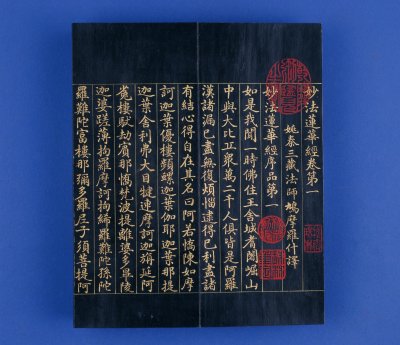 妙法蓮華經卷第一
姚秦三藏法師鳩摩羅什譯
妙法蓮華經序品第一
如是我聞一時佛住王舍城耆闍崛山
中與大比丘衆萬二千人俱皆是阿羅
漢諸漏已盡無復煩惱逮得已利盡諸
有結心得自在其名曰阿若憍陳如摩
訶迦葉優樓頻螺迦葉伽耶迦葉那提
迦葉舍利弗大目犍連摩訶迦旃延阿
㝹樓馱劫賓那憍梵波提離婆多畢陵
伽婆蹉薄拘羅摩訶拘絺羅難陀孫陀
羅難陀富樓那彌多羅尼子須菩提阿